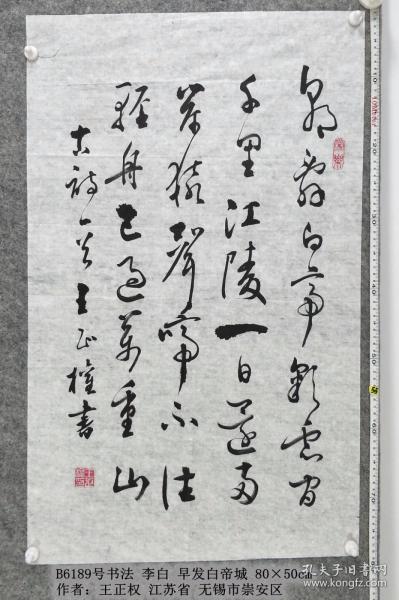 朝辭白帝彩雲間
千里江陵一日還兩
岸猿聲啼不住
輕舟已過萬重山
古詩一首 王正權書
B6189号书法 李白 早发白帝城 80×50cm
作者：王正权 江苏省 无锡市崇安区
孔夫子旧书网